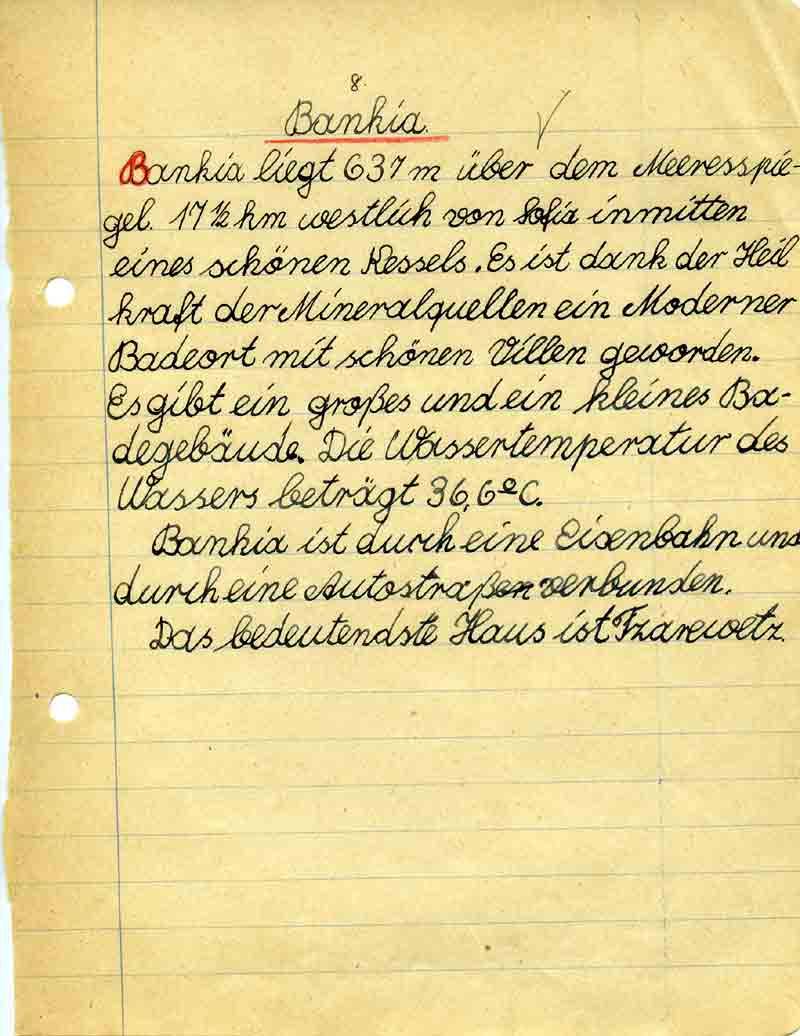 8.
Bankia.
Bankia liegt 637 m über dem Meeresspie-
gel. 17 ½ km westlich von Sofia inmitten
eines schönen Kessels. Es ist dank der Heil
kraft der Mineralquellen ein Moderner
Badeort mit schönen Villen geworden.
Es gibt ein großes und ein kleines Ba-
degebäude. Die Wassertemperatur des
Wassers beträgt 36,6° C.
Bankia ist durch eine Eisenbahn und
durch eine Autostraßen verbunden.
Das bedeutendste Haus ist Tzarewetz.